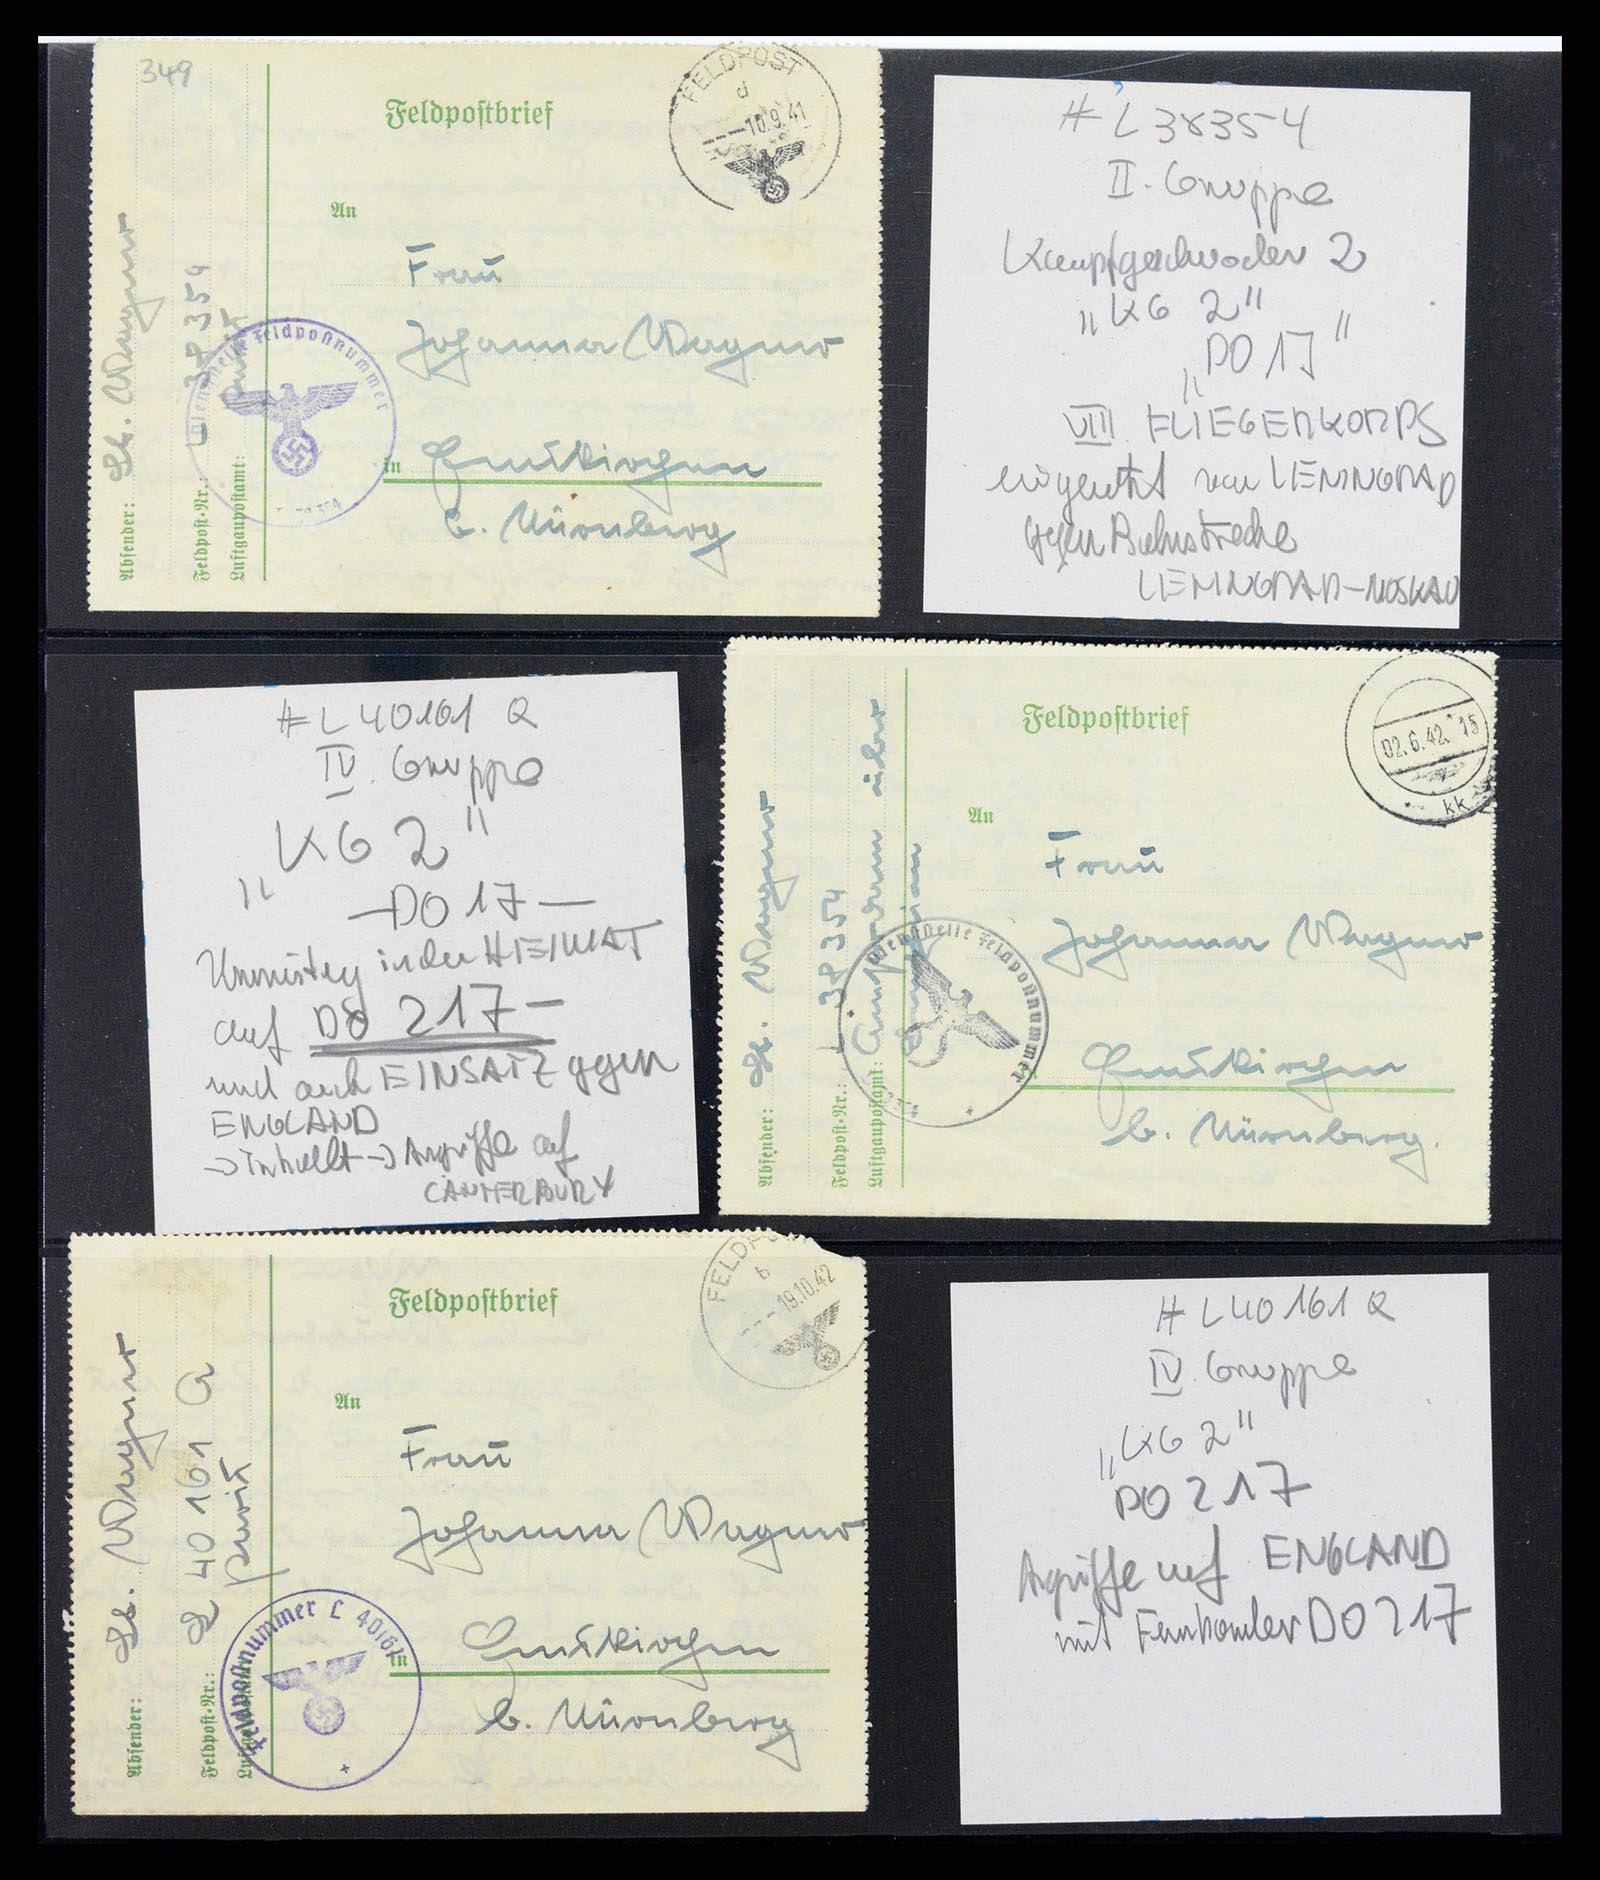 349
Feldpostbrief
FELDPOST
d
10.9.41
An
Frau
Johanna Wagner
in Emskirchen
b. Nürnberg
Absender: Lt. Wagner
Feldpost-Nr.: L 38 354
Luftgaupostamt: Paris
Dienststelle Feldpostnummer
# L 38354
II. Gruppe
Kampfgeschwader 2
"KG 2"
"DO 17"
VIII FLIEGERKORPS
eingesetzt von LENINGRAD
gegen Bahnstrecke
LENINGRAD-MOSKAU
# L 40161 Q
IV. Gruppe
"KG 2"
-DO 17-
Umrüstung in der HEIMAT
auf DO 217-
und auch EINSATZ gegen
ENGLAND
→ Inhalt → Angriffe auf
CANTERBURY
Feldpostbrief
02.6.42.15
kk
An
Frau
Johanna Wagner
in Emskirchen
b. Nürnberg.
Absender: Lt. Wagner
Feldpost-Nr.: L 38 354
Luftgaupostamt: Amsterdam über
Dienststelle Feldpostnummer
Feldpostbrief
FELDPOST
b
19.10.42
An
Frau
Johanna Wagner
in Emskirchen
b. Nürnberg
Absender: Lt. Wagner
Feldpost-Nr.: L 40 161 Q
Luftgaupostamt: Paris
Feldpostnummer L 40161
# L 40161 Q
IV. Gruppe
"KG 2"
DO 217
Angriffe auf ENGLAND
mit Fernbomber DO 217